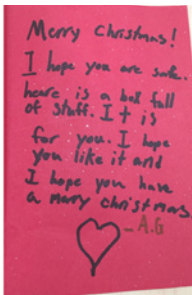 Merry Christmas!
I hope you are safe.
heare is a box full
of stuff. It is
for you. I hope
you like it and
I hope you have
a mary christmas
- A.G